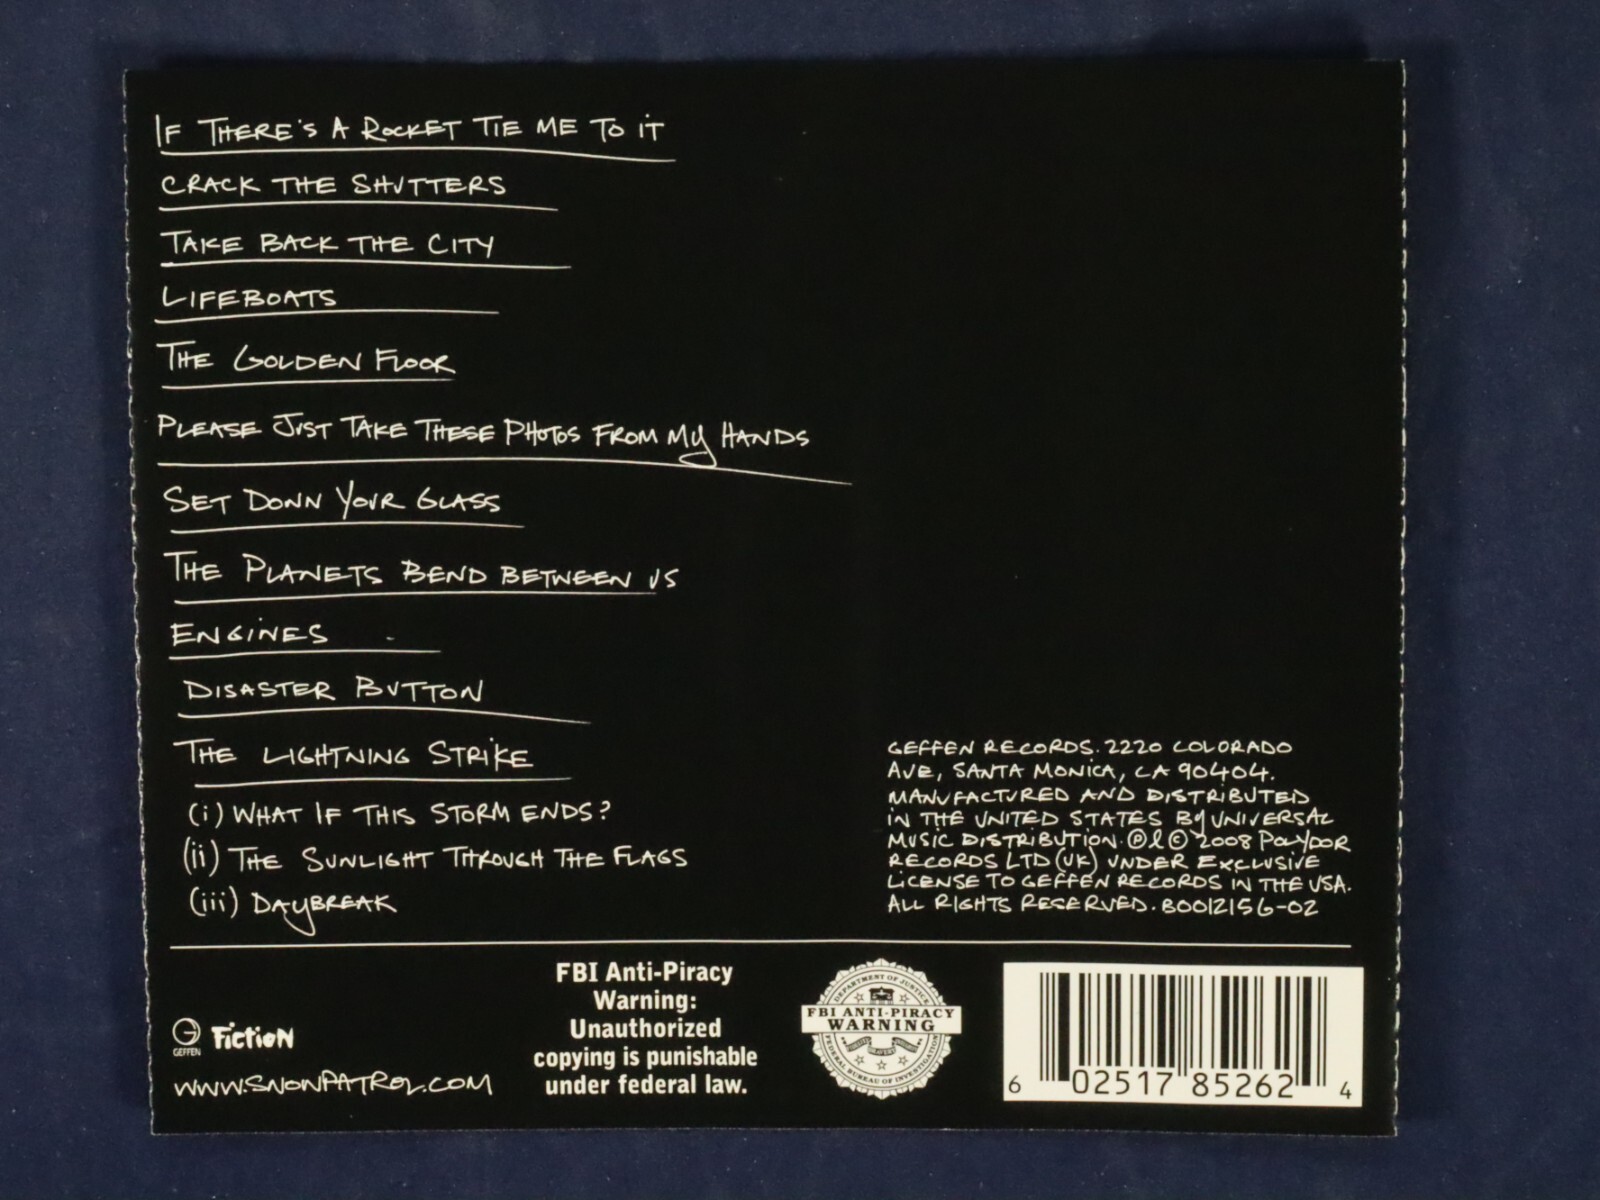 IF THERE'S A ROCKET TIE ME TO IT
CRACK THE SHUTTERS
TAKE BACK THE CITY
LIFEBOATS
THE GOLDEN FLOOR
PLEASE JUST TAKE THESE PHOTOS FROM MY HANDS
SET DOWN YOUR GLASS
THE PLANETS BEND BETWEEN US
ENGINES
DISASTER BUTTON
THE LIGHTNING STRIKE
(i) WHAT IF THIS STORM ENDS?
(ii) THE SUNLIGHT THROUGH THE FLAGS
(iii) DAYBREAK
GEFFEN RECORDS. 2220 COLORADO
AVE, SANTA MONICA, CA 90404.
MANUFACTURED AND DISTRIBUTED
IN THE UNITED STATES BY UNIVERSAL
MUSIC DISTRIBUTION. ℗&© 2008 POLYDOR
RECORDS LTD (UK) UNDER EXCLUSIVE
LICENSE TO GEFFEN RECORDS IN THE USA.
ALL RIGHTS RESERVED. B0012156-02
GEFFEN
Fiction
WWW.SNOWPATROL.COM
FBI Anti-Piracy
Warning:
Unauthorized
copying is punishable
under federal law.
DEPARTMENT OF JUSTICE
FBI ANTI-PIRACY
WARNING
FEDERAL BUREAU OF INVESTIGATION
6 02517 85262 4